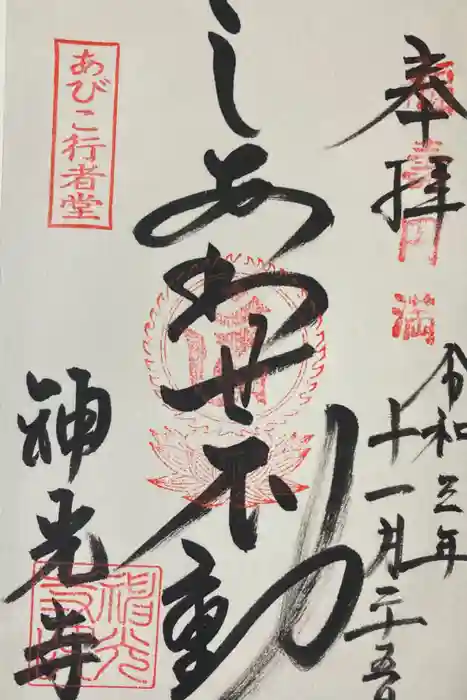 奉拝
福寿円満
令和三年
十一月二十五日
しあわせ不動
あびこ行者堂
神光寺